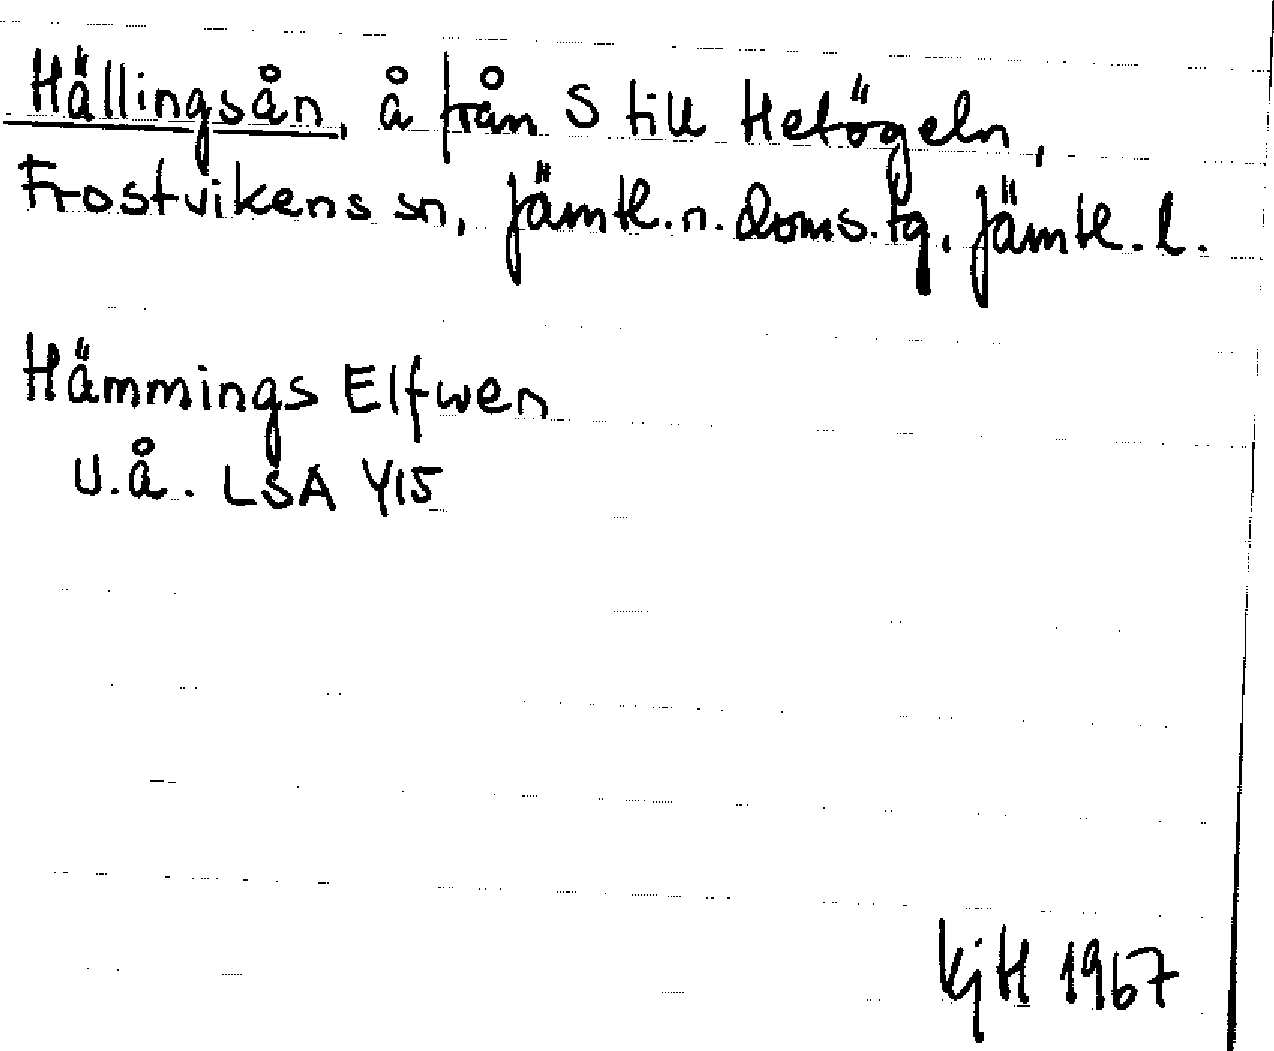 Hällingsån, å från S till Hetögeln,
Frostvikens sn, Jämtl. n. Doms. tg. Jämtl. l.
Hämmings Elfwen
u.å. LSA Y15
KjH 1967